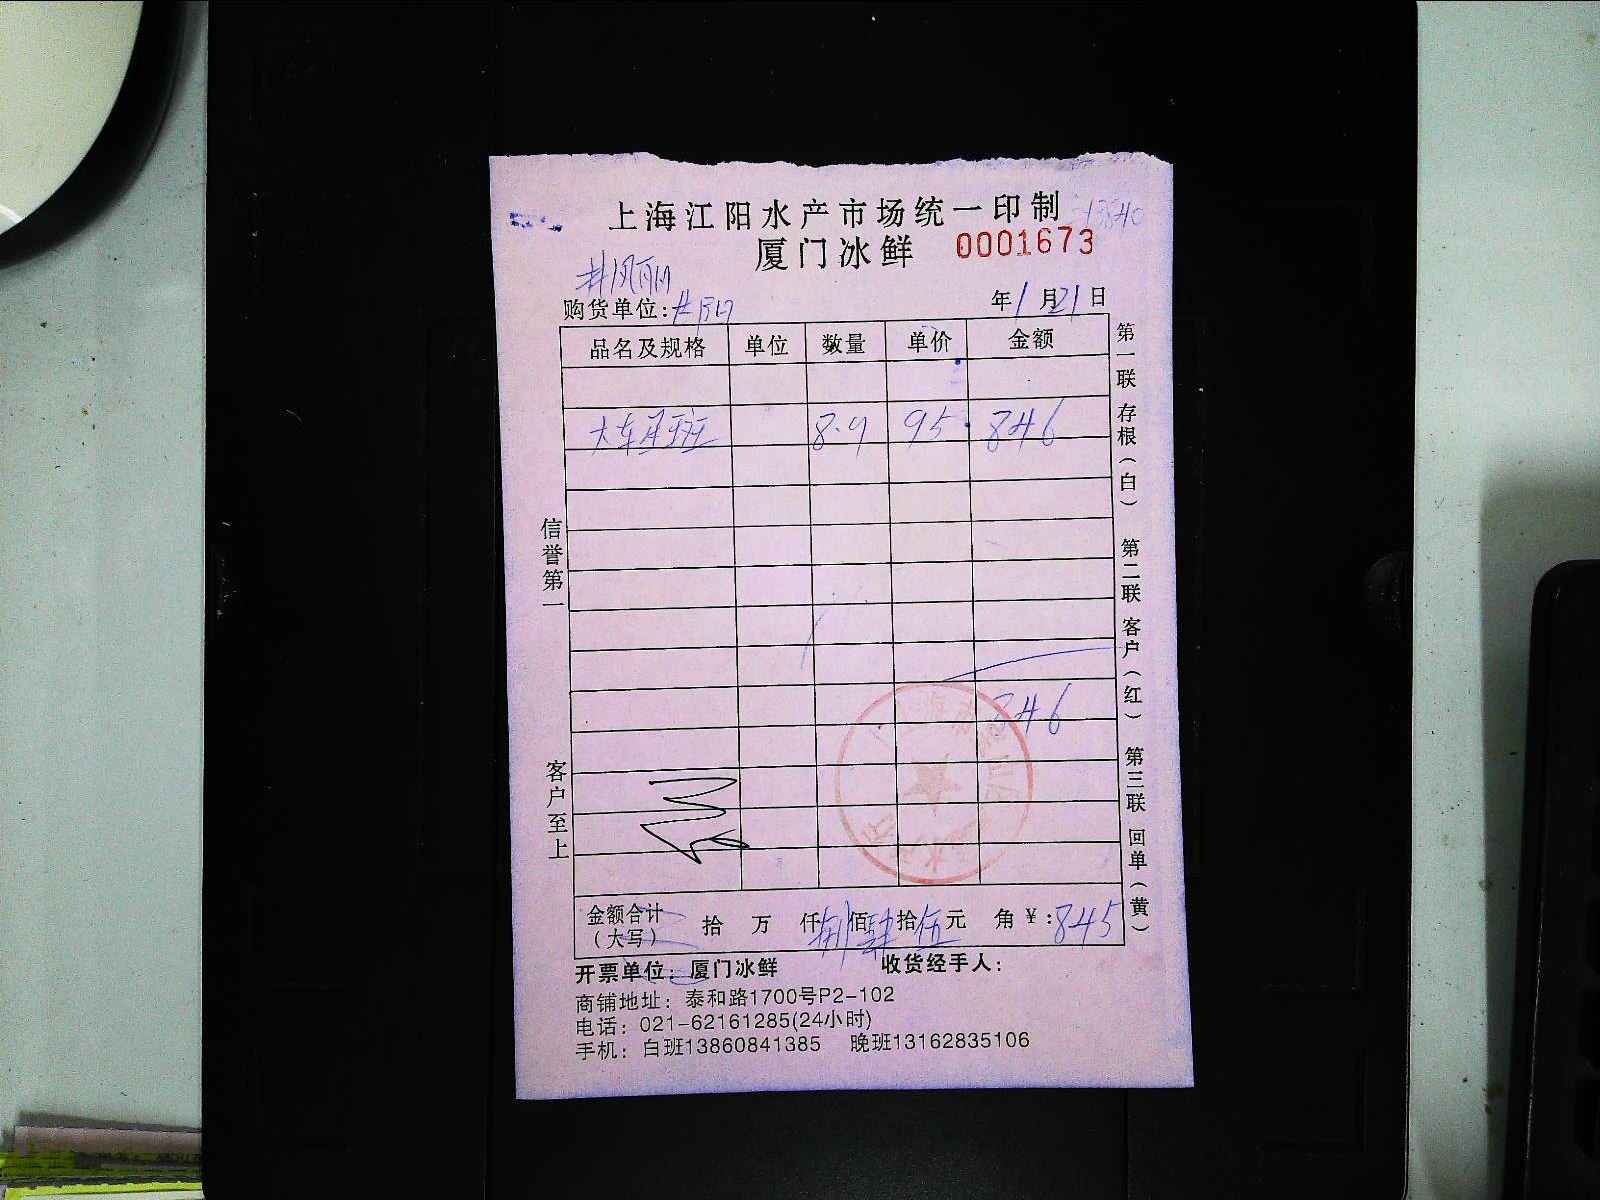 上海江阳水产市场统一印制
厦门冰鲜 0001673
购货单位:
年1月21日
品名及规格 单位 数量 单价 金额
大东星斑 8.9 95 846
846
金额合计(大写) 拾 万 仟捌佰肆拾伍元 角 ¥:845
开票单位:厦门冰鲜 收货经手人:
商铺地址:泰和路1700号P2-102
电话:021-62161285(24小时)
手机:白班13860841385 晚班13162835106
信誉第一 客户至上
第一联 存根(白) 第二联 客户(红) 第三联 回单(黄)